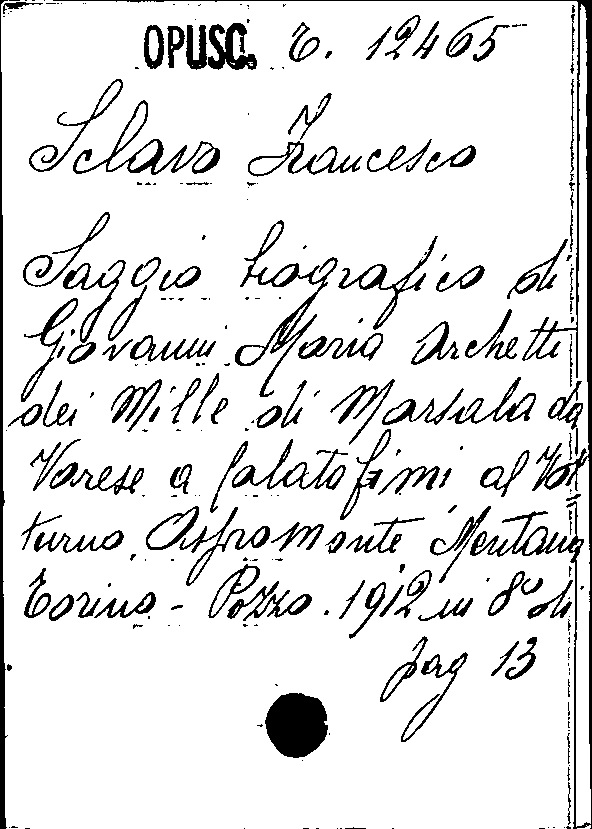 OPUSC. E. 12465
Sclavo Francesco
Saggio biografico di
Giovanni Maria Archetti
dei Mille di Marsala da
Varese a Calatafimi al Vol=
turno, Aspromonte, Mentana
Torino - Pozzo. 1912 in 8° di
pag 13